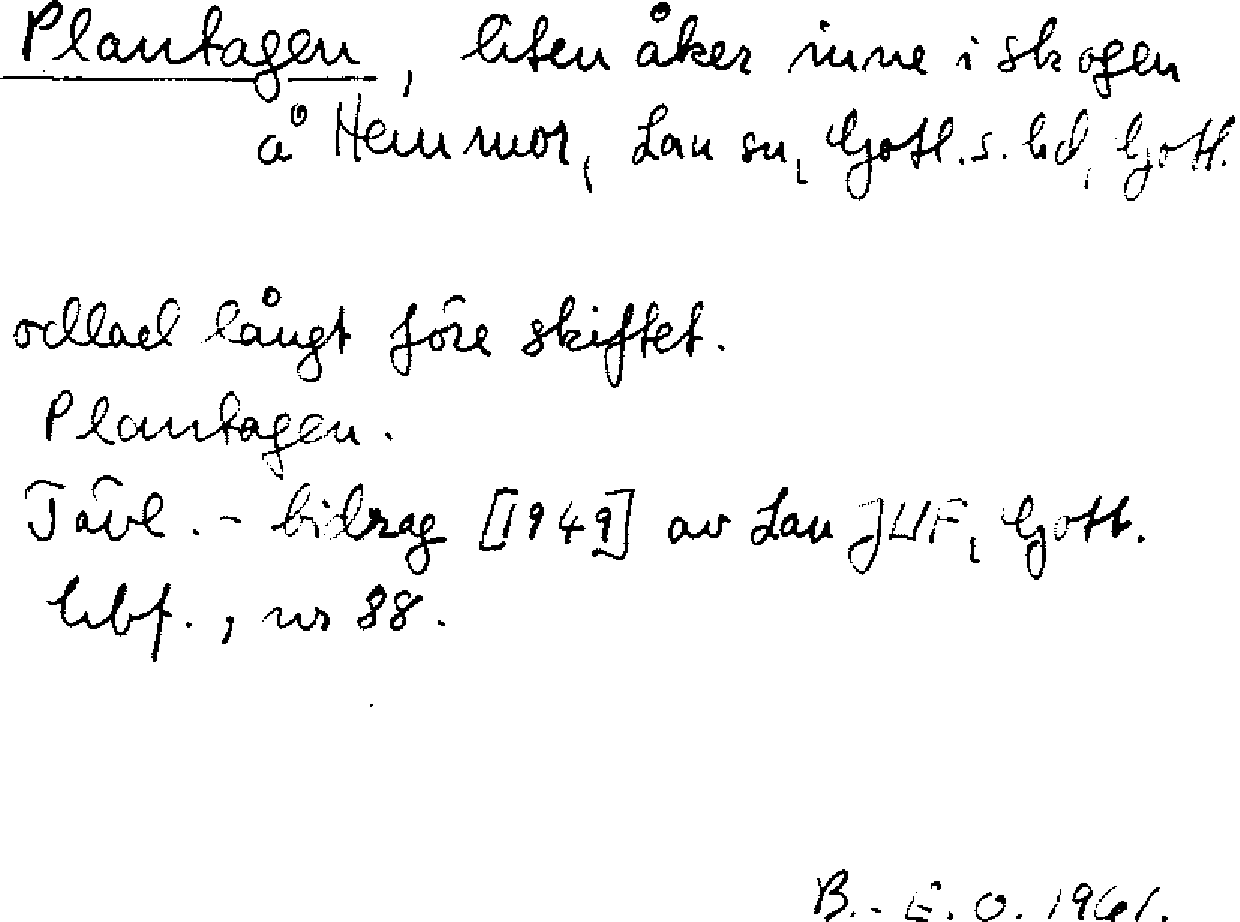 Plantagen, liten åker inne i skogen
å Hemmor, Lau sn, Gotl. s. hd, Gotl.
odlad långt före skiftet.
Plantagen.
Tävl.-bidrag [1949] av Lau JUF, Gotl.
hbf., nr 88.
B.-E. O. 1961.